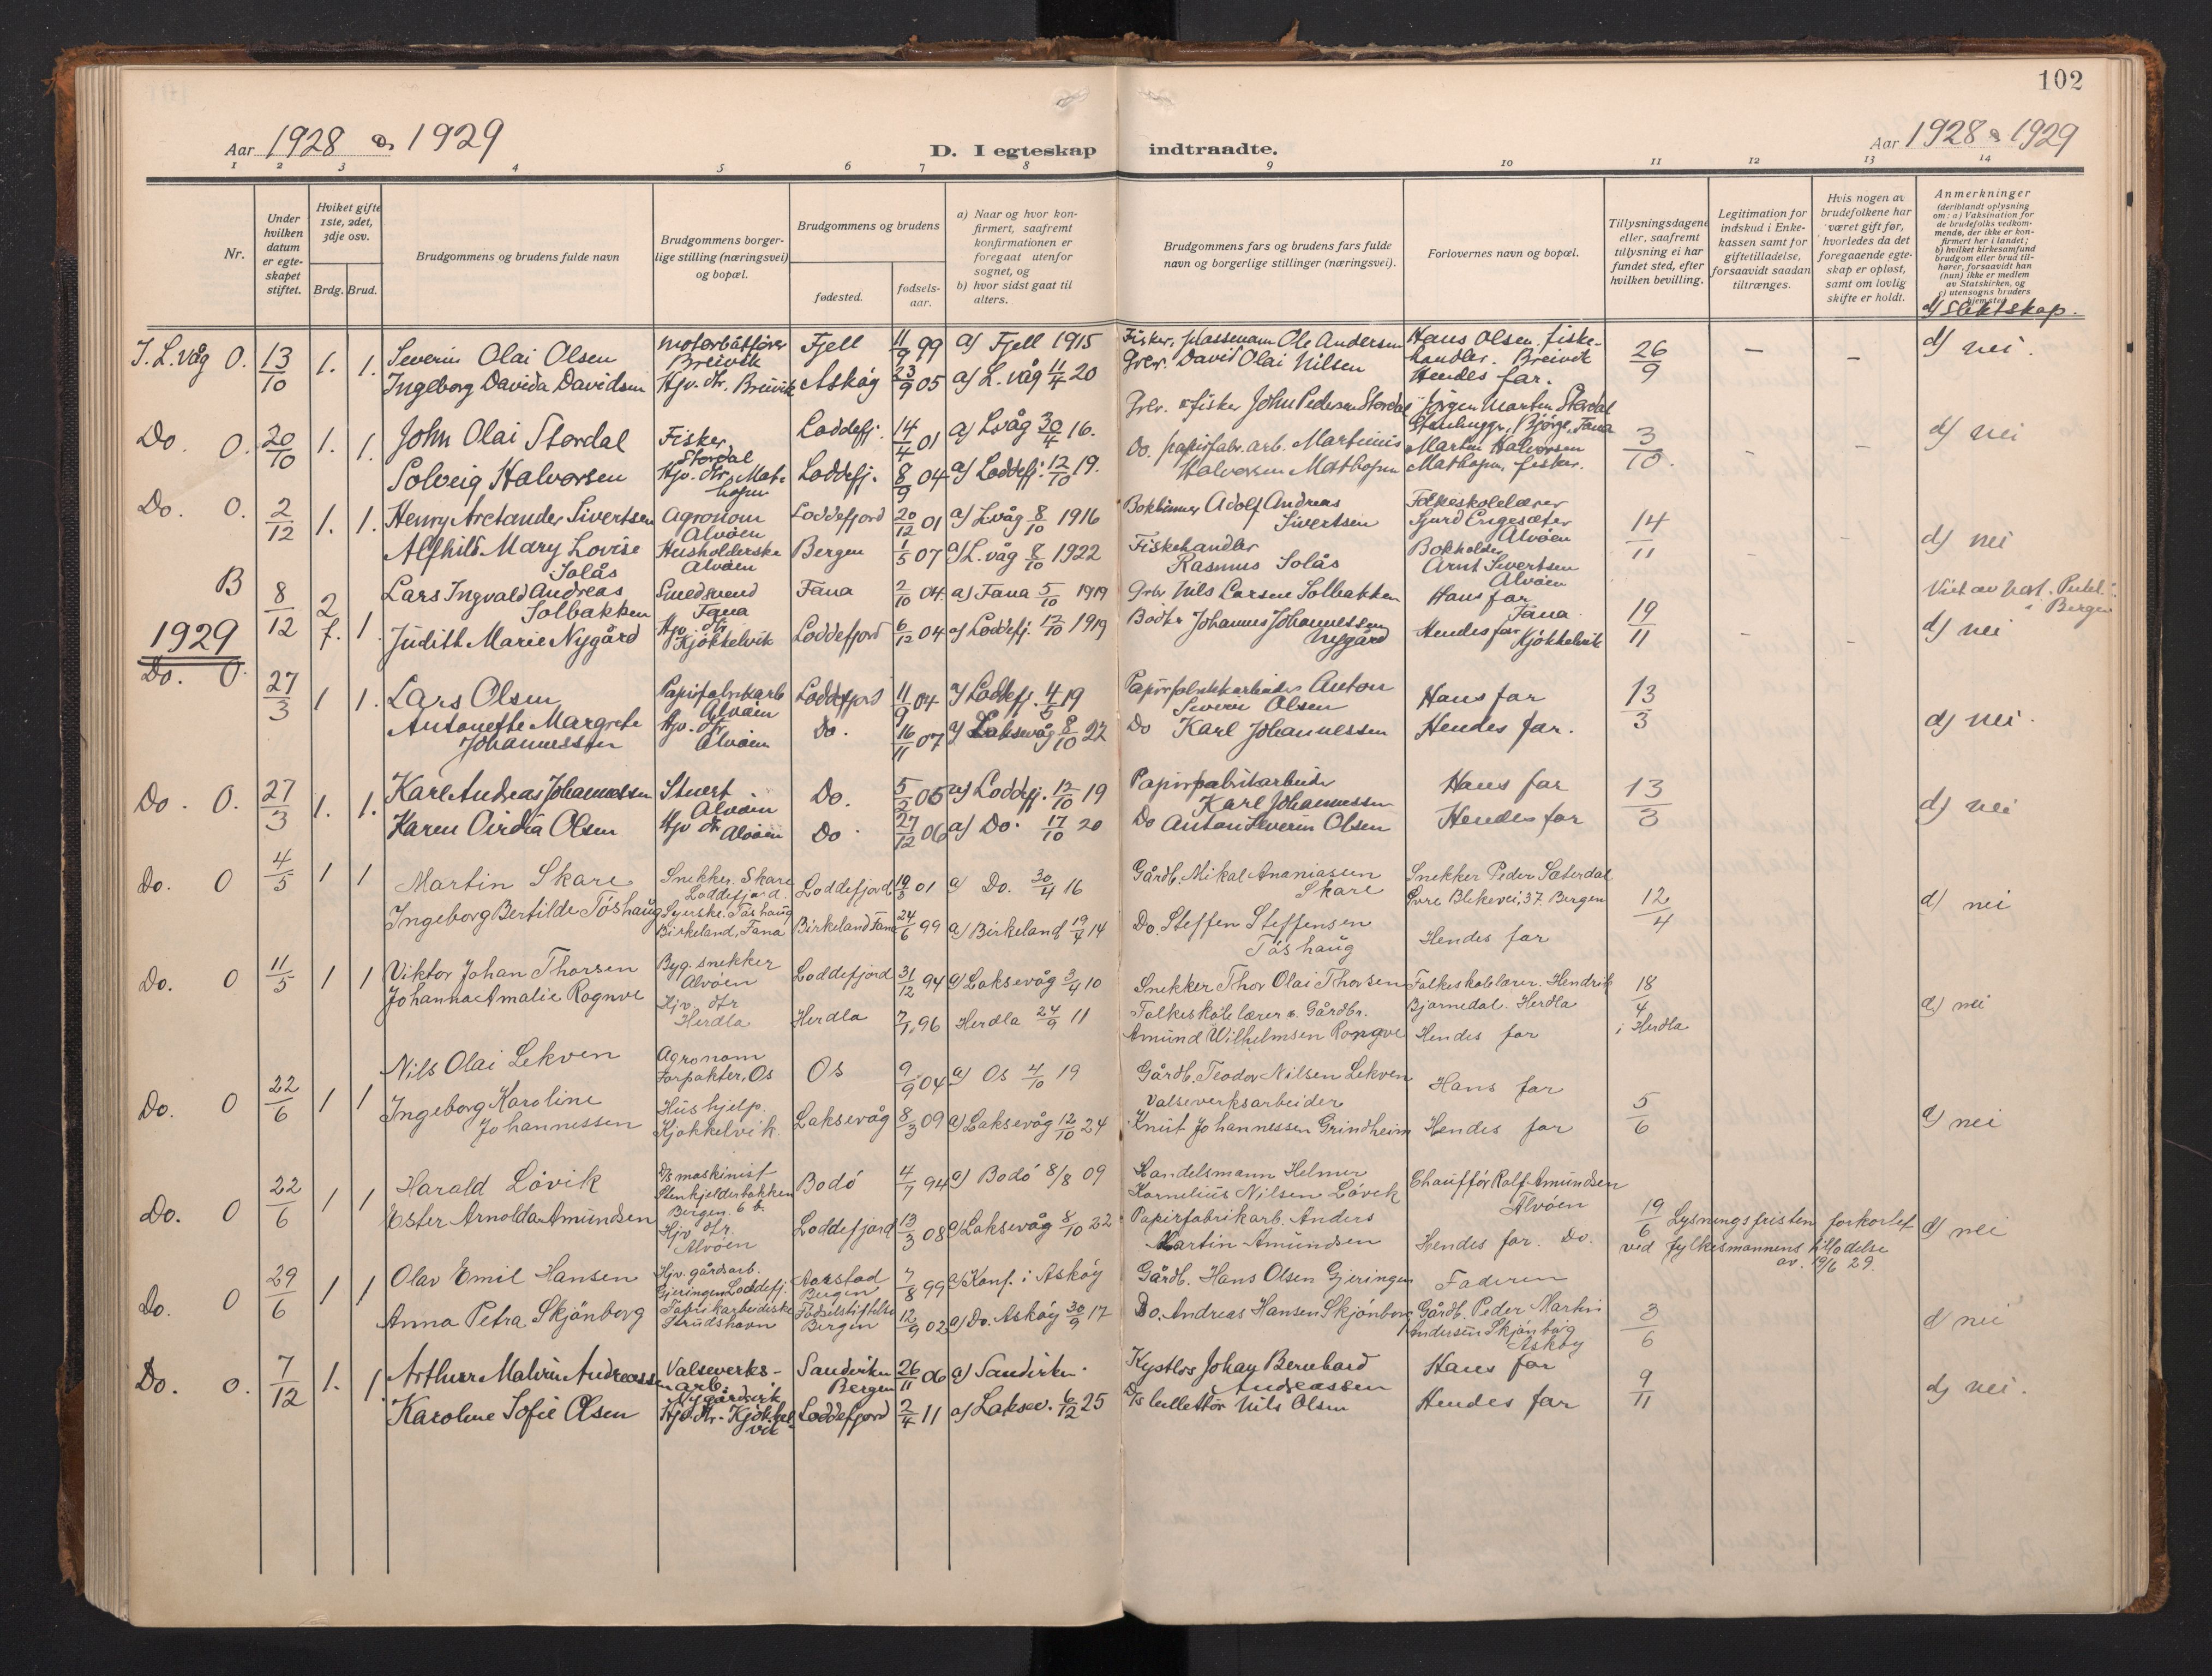 102
Aar 1928 & 1929
D. I egteskap indtraadte.
Aar 1928 & 1929
1 2 3 4 5 6 7 8 9 10 11 12 13 14
Nr.
Under hvilken datum er egteskapet stiftet.
Hvilket gifte 1ste, 2det, 3dje osv.
Brdg. Brud.
Brudgommens og brudens fulde navn
Brudgommens borgerlige stilling (næringsvei) og bopæl.
Brudgommens og brudens
fødested.
fødselsaar.
a) Naar og hvor konfirmert, saafremt konfirmationen er foregaat utenfor sognet, og
b) hvor sidst gaat til alters.
Brudgommens fars og brudens fars fulde navn og borgerlige stillinger (næringsvei).
Forlovernes navn og bopæl.
Tillysningsdagene eller, saafremt tillysning ei har fundet sted, efter hvilken bevilling.
Legitimation for indskud i Enkekassen samt for giftetilladelse, forsaavidt saadan tiltrænges.
Hvis nogen av brudefolkene har været gift før, hvorledes da det foregaaende egteskap er opløst, samt om lovlig skifte er holdt.
Anmerkninger
(deriblandt oplysning om: a) Vaksination for de brudefolks vedkommende, der ikke er konfirmert her i landet; b) hvilket kirkesamfund brudgom eller brud tilhører, forsaavidt han (hun) ikke er medlem av Statskirken, og c) utensogns bruders hjemsted
d) Slektskap.
I. L. våg O. 13/10 1. 1. Severin Olai Olsen Motorbåtfører Breivik Fjell 11/9 99 a) Fjell 1915 Fisker, Ole Andersen Hans Olsen, fiskehandler. Breivik 26/9 — — d) nei.
Ingeborg Davida Davidsen Hjv. dtr. Breivik Askøy 23/9 05 a) L. våg 11/4 20 Grbr. David Olai Nilsen Hendes far.
Do. O. 20/10 1. 1. John Olai Stordal Fisker, Stordal Loddefj. 14/4 01 a) Lvåg 30/4 16. Grbr. & fisker John Pedersen Stordal Jørgen Martin Stordal Stenhuggr., Bjørge, Fana 3/10. - - d) nei
Solveig Halvorsen Hjv. dtr., Mathopen Loddefj. 8/9 04 a) Loddefj. 12/10 19. Do. papirfabr. arb. Martinius Halvorsen Mathopen Martin Halvorsen Mathopen, fisker.
Do. O. 2/12 1. 1. Henry Arctander Sivertsen Agronom Alvøen Loddefjord 20/12 01 a) Lvåg 8/10 1916 Bokbinner Adolf Andreas Sivertsen Folkeskolelærer Sjurd Engesæter Alvøen 14/11 - - d) nei
Alfhild Mary Lovise Solås Husholderske Alvøen Bergen 1/5 07 a) L. våg 8/10 1922 Fiskehandler Rasmus Solås Bokholder Arnt Sivertsen Alvøen
B 8/12 2 7. 1. Lars Ingvald Andreas Solbakken Smedsvend Fana Fana 2/10 04. a) Fana 5/10 1919 Grbr Nils Larsen Solbakken Hans far Fana 19/11 - - d) nei
i Bergen
Judith Marie Nygård Hjv. dtr Kjøkkelvik Loddefjord 6/12 04 a) Loddefj. 12/10 1919 Johannes Johannessen Nygård Hendes far Kjøkkelvik
1929
Do. O. 27/3 1 1. Lars Olsen Papirfabrikarb Alvøen Loddefjord 11/9 04 a) Loddefj. 4/5 19 Papirfabrikkarbeider Anton Severin Olsen Hans far 13/3 d) nei.
Antonette Margrete Johannessen Hjv. dtr Alvøen Do. 16/11 07 a) Laksevåg 8/10 22 Do Karl Johannessen Hendes far.
Do. O. 27/3 1. 1. Karl Andreas Johannessen Stuert Alvøen Do. 5/2 05 a) Loddefj. 12/10 19 Papirfabrikarbeider Karl Johannessen Hans far 13/3 d) nei
Karen Olsen Hjv dtr Alvøen Do 27/12 06 a) Do. 17/10 20 Do Anton Severin Olsen Hendes far
Do. O 4/5 1 1 Martin Skare Snekker, Skare Loddefjord. Loddefjord 19/3 01 a) Do. 30/4 16 Gårdb. Mikal Ananiassen Skare Snekker Peder Sæterdal Øvre Blekevei, 37. Bergen 12/4 d) nei
Ingeborg Bertilde Töshaug Syerske. Töshaug Birkeland, Fana Birkeland Fana 24/6 99 a) Birkeland 19/4 14 Do. Steffen Steffensen Töshaug Hendes far
Do. O 11/5 1 1 Viktor Johan Thorsen Byg. snekker Alvöen Loddefjord 31/12 94 a) Laksevåg 3/4 10 Snekker Thor Olai Thorsen Folkeskolelærer. Hendrik Bjarnedal. Herdla 18/4 i Herdla d) nei
Johanna Amalie Rognve Hjv. dtr Herdla Herdla 7/1 96 Herdla 24/9 11 Folkeskolelærer & Gårdbr. Amund Wilhelmsen Rongve Hendes far
Do. O 22/6 1 1 Nils Olai Lekven Agronom Forpakter, Os Os 9/9 04 a) Os 4/10 19 Gårdb. Teodor Nilsen Lekven Hans far 5/6 d) nei
Ingeborg Karoline Johannessen Hushjelp. Kjøkkelvik Laksevåg 8/3 09 a) Laksevåg 12/10 24 Valseverksarbeider Knut Johannessen Grindheim Hendes far
Do. O 22/6 1 1 Harald Lövik D/s maskinist Stenkjelderbakken Bergen. 6 b. Bodö 4/7 94 a) Bodö 8/8 09 Handelsmann Helmer Kornelius Nilsen Lövik Chauffør Ralf Amundsen Alvöen 19/6 Lysningsfristen forkortet ved fylkesmannens tillodelse av. 19/6 29. d) nei
Ester Arnolda Amundsen Hjv. dtr. Alvöen Loddefjord 13/3 08 a) Laksevåg 8/10 22 Papirfabrikarb. Anders Martin Amundsen Hendes far. Do.
Do. O 29/6 1 1 Olav Emil Hansen Hjv. gårdsarb. Gjeringen Loddefj. Aarstad Bergen 7/8 99 a) Konf. i Asköy Gårdb. Hans Olsen Gjeringen Faderen 3/6 d) nei
Anna Petra Skjönberg Fabrikarbeiderske Strudshavn Fødselstiftelse Bergen 12/9 02 a) Do. Asköy 30/9 17 Do. Andreas Hansen Skjönberg Gårdb. Peder Martin Andersen Asköy
Do. O. 7/12 1. 1. Arthur Malvin Andreassen Valseverksarb. Nygårdsvik Sandviken Bergen 26/11 06 a) Sandviken. Johan Bernhard Andreassen Hans far 9/11 d) nei.
Karoline Sofie Olsen Hjv. dtr. Kjøkkelvik Loddefjord 2/4 11 a) Laksev. 6/12 25 D/s Nils Olsen Hendes far